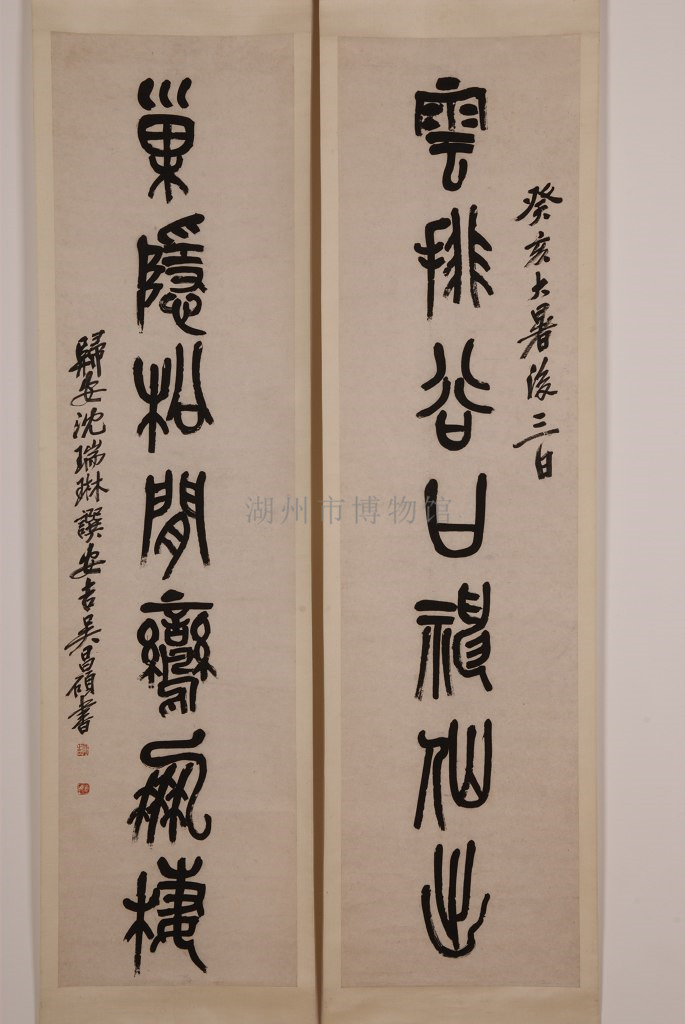 癸亥大暑後三日
雲排谷口神仙出
巢隱松閒鸞鳳棲
歸安沈瑞琳譔安吉吳昌碩書
湖州市博物馆